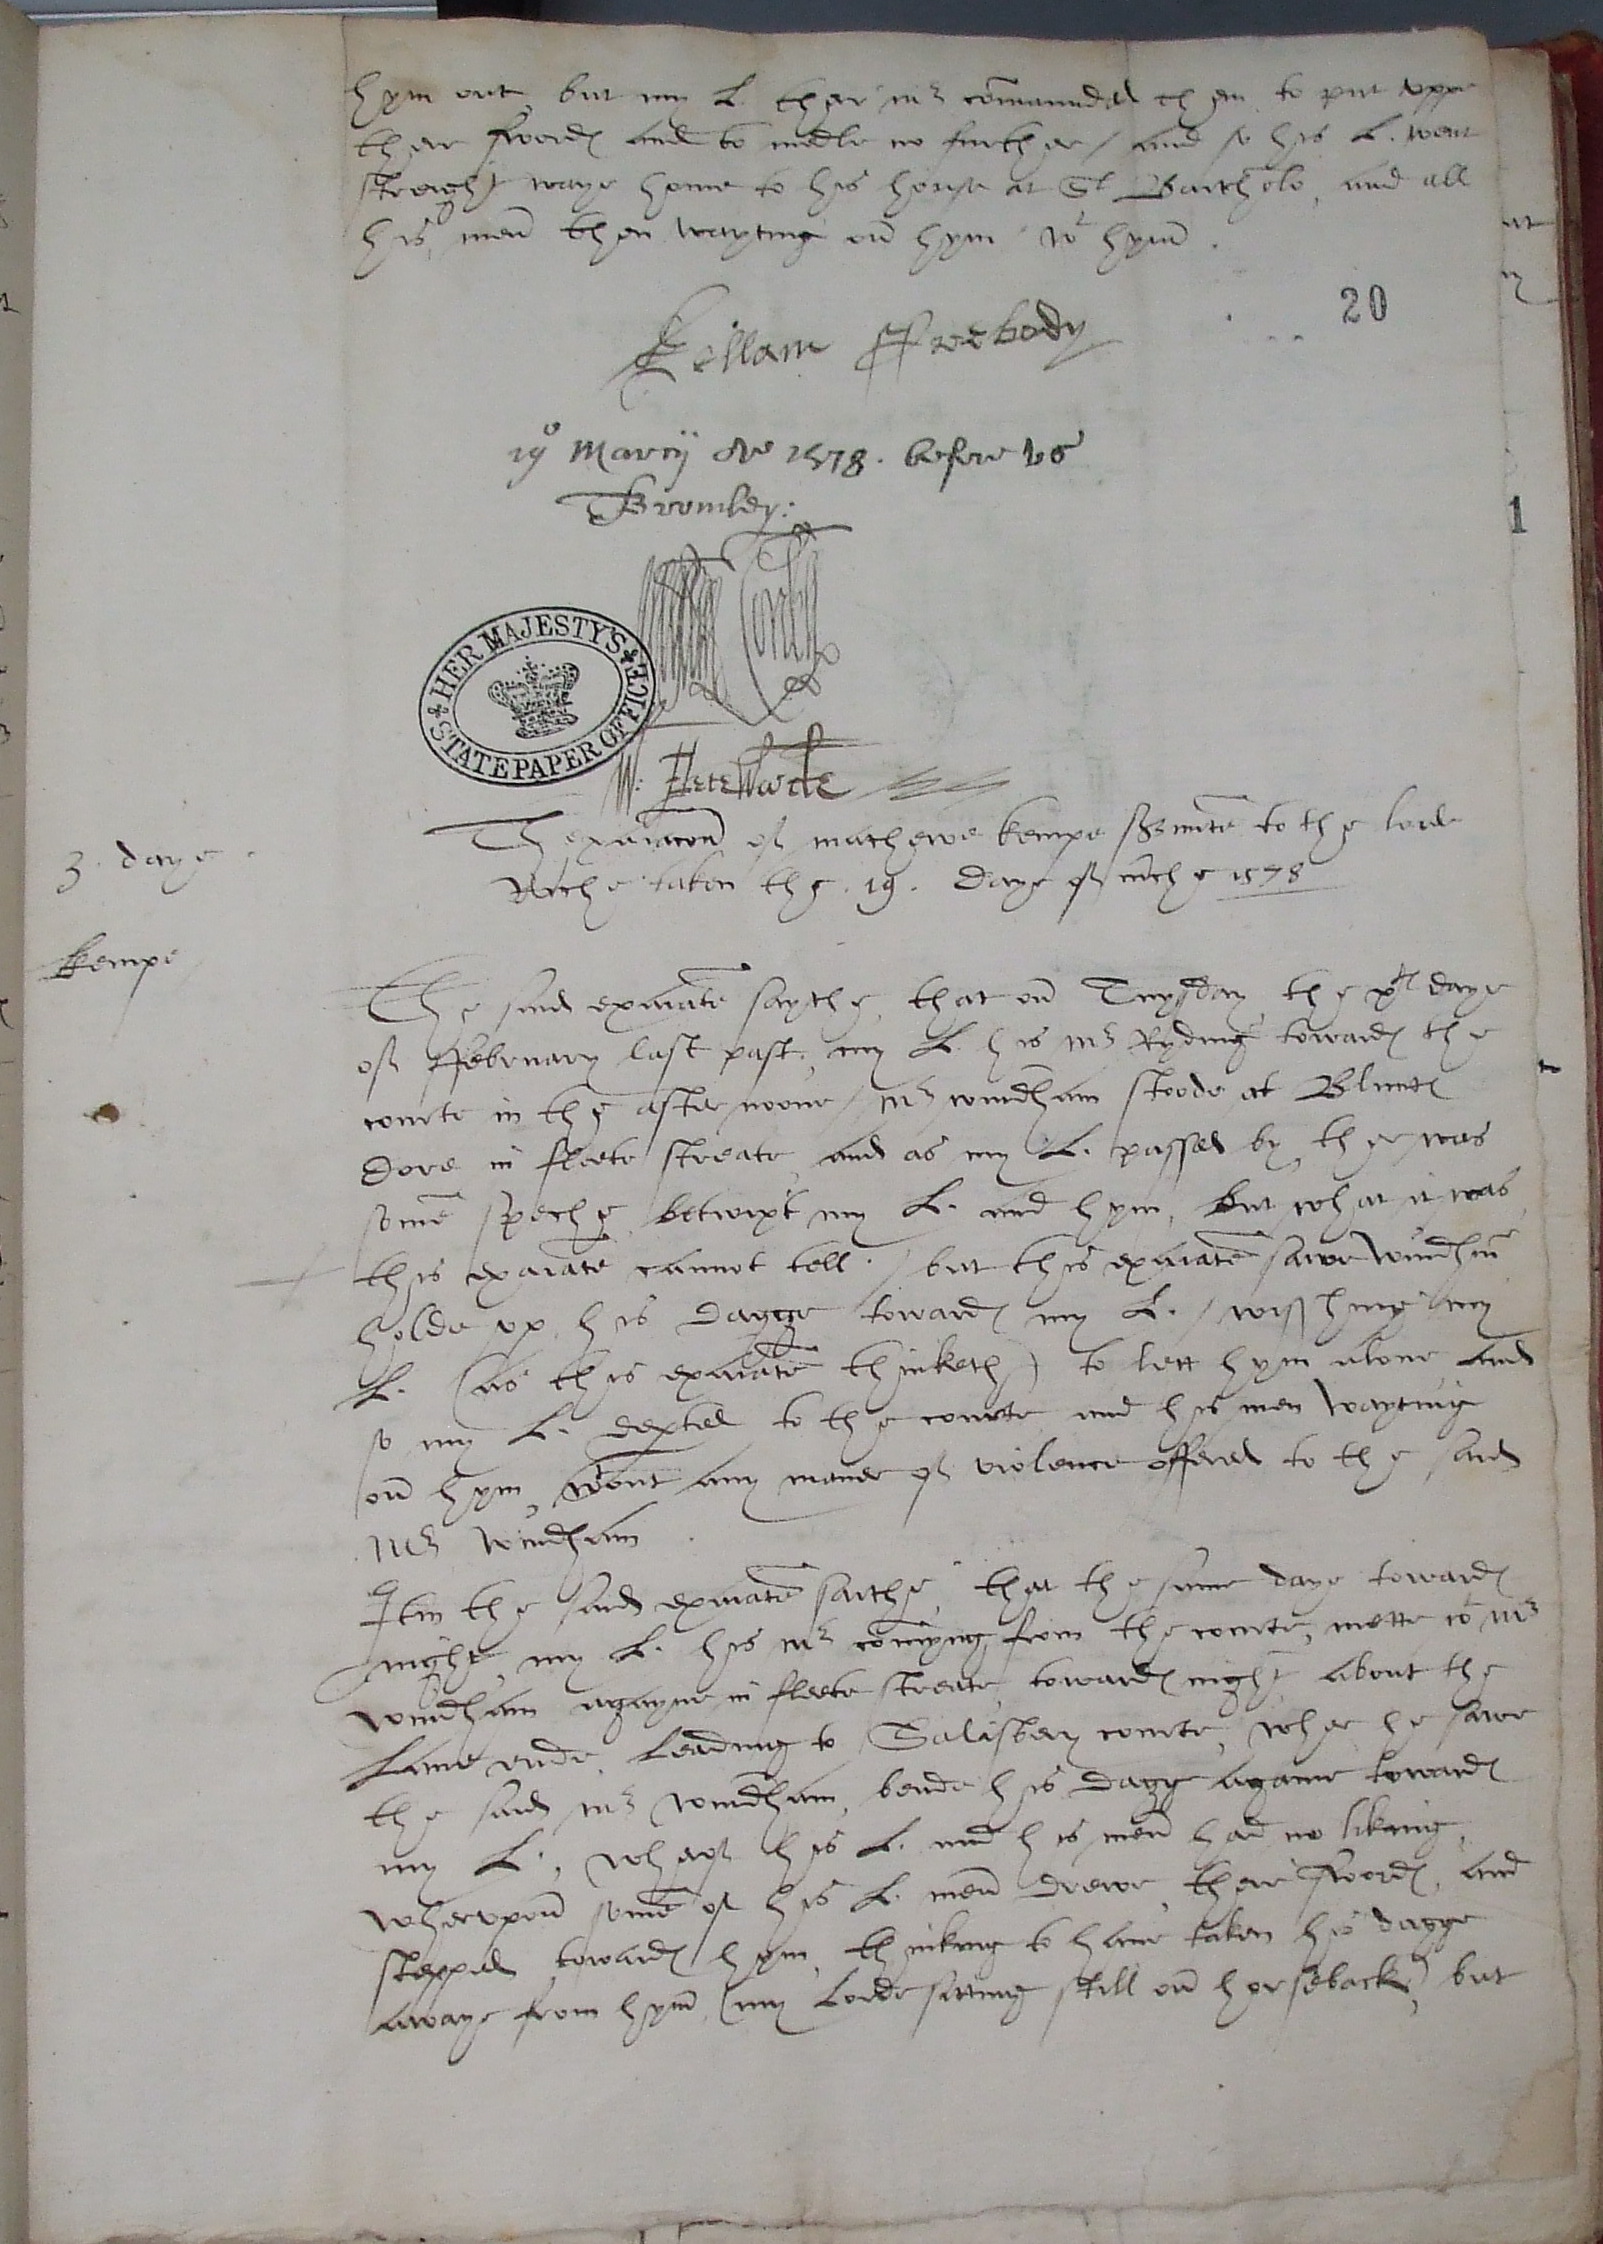 hym out, but my L. ther mr comaunded them to put uppe
ther swords and to medle no further / and so his L. went
streight waye home to his house at St Bartholo, and all
his men then wayting on hym wt hym.
20
Kellam Freebody
19o Marcij 1578. before us
Bromley:
HER MAJESTY'S STATE PAPER OFFICE
W: Fletewoode
3. daye
Thexaiacon of mathewe kempe to the lorde
Riche taken the .19. daye of mche 1578
Kempe
The said exaiate saythe, that on Tuysday the daye
of ffebruary last past, my L. his mr Ryding towards the
courte in the after noone / mr wyndham stoode at Blunts
dore in fleete streate and as my L. passed by ther was
some speche betwixt my L. and hym, but what it was
this exaiate cannot tell. / but this exaiate sawe wyndhm
holde up his dagge towards my L. / wisshing my
L. (as this exaiate thinketh) to lett hym alone and
so my L. depted to the courte and his men wayting
on hym, wtout any maner of violence offered to the said
mr wyndham.
Itm the said exaiate saithe, that the same daye towards
night, my L. his mr comyng from the courte, mette wt mr
wyndham agayne in fleete streate towards night about the
Lane ende leading to Salisbery courte, wher he sawe
the said mr wyndham, bende his dagge agaime towards
my L., wherof his L. and his men had no liking,
wherupon some of his L. men drewe ther swords, and
stepped towards hym, thinking to have taken his dagge
awaye from hym, (my Lorde sitting still on horseback) but